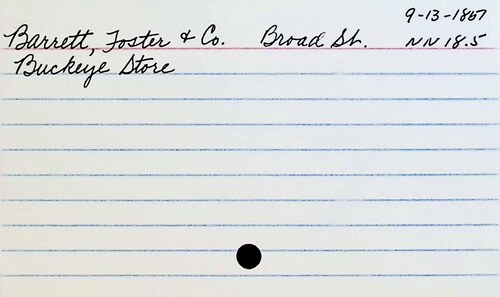 9-13-1867
Barrett, Foster & Co. Broad St. NN 18.5
Buckeye Store